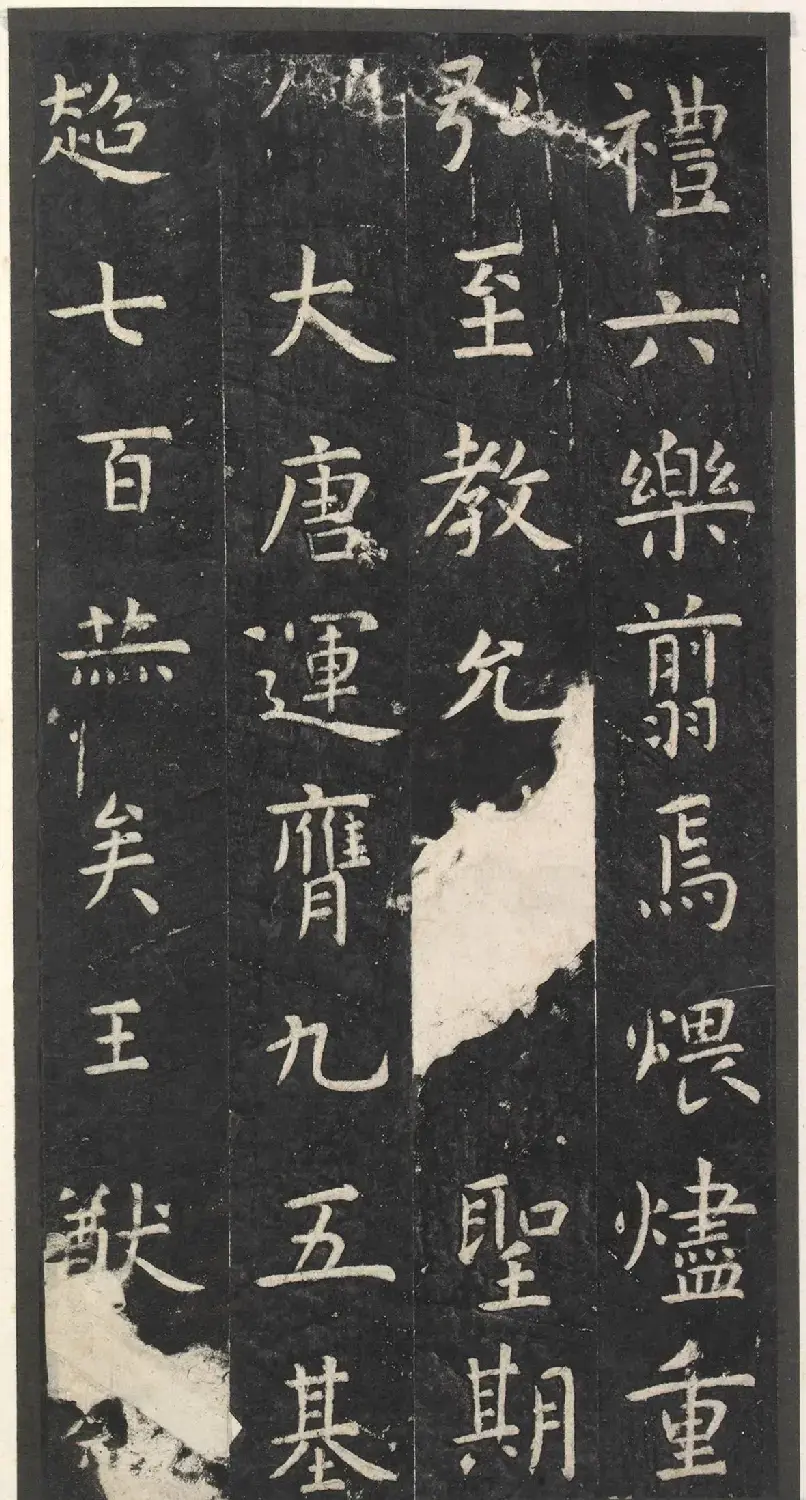 禮六樂翦焉煨燼重
弘至教允聖期
大唐運膺九五基
超七百赫矣王猷